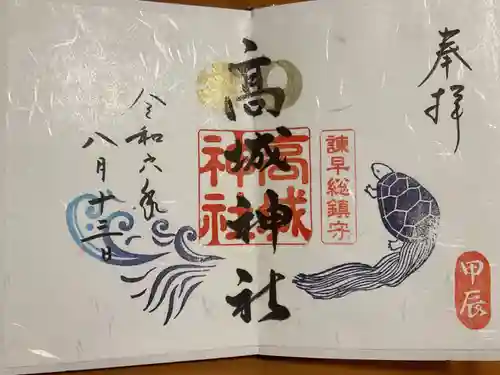 奉拝
諫早総鎮守
甲辰
高城神社
高城神社
令和六年
八月十三日